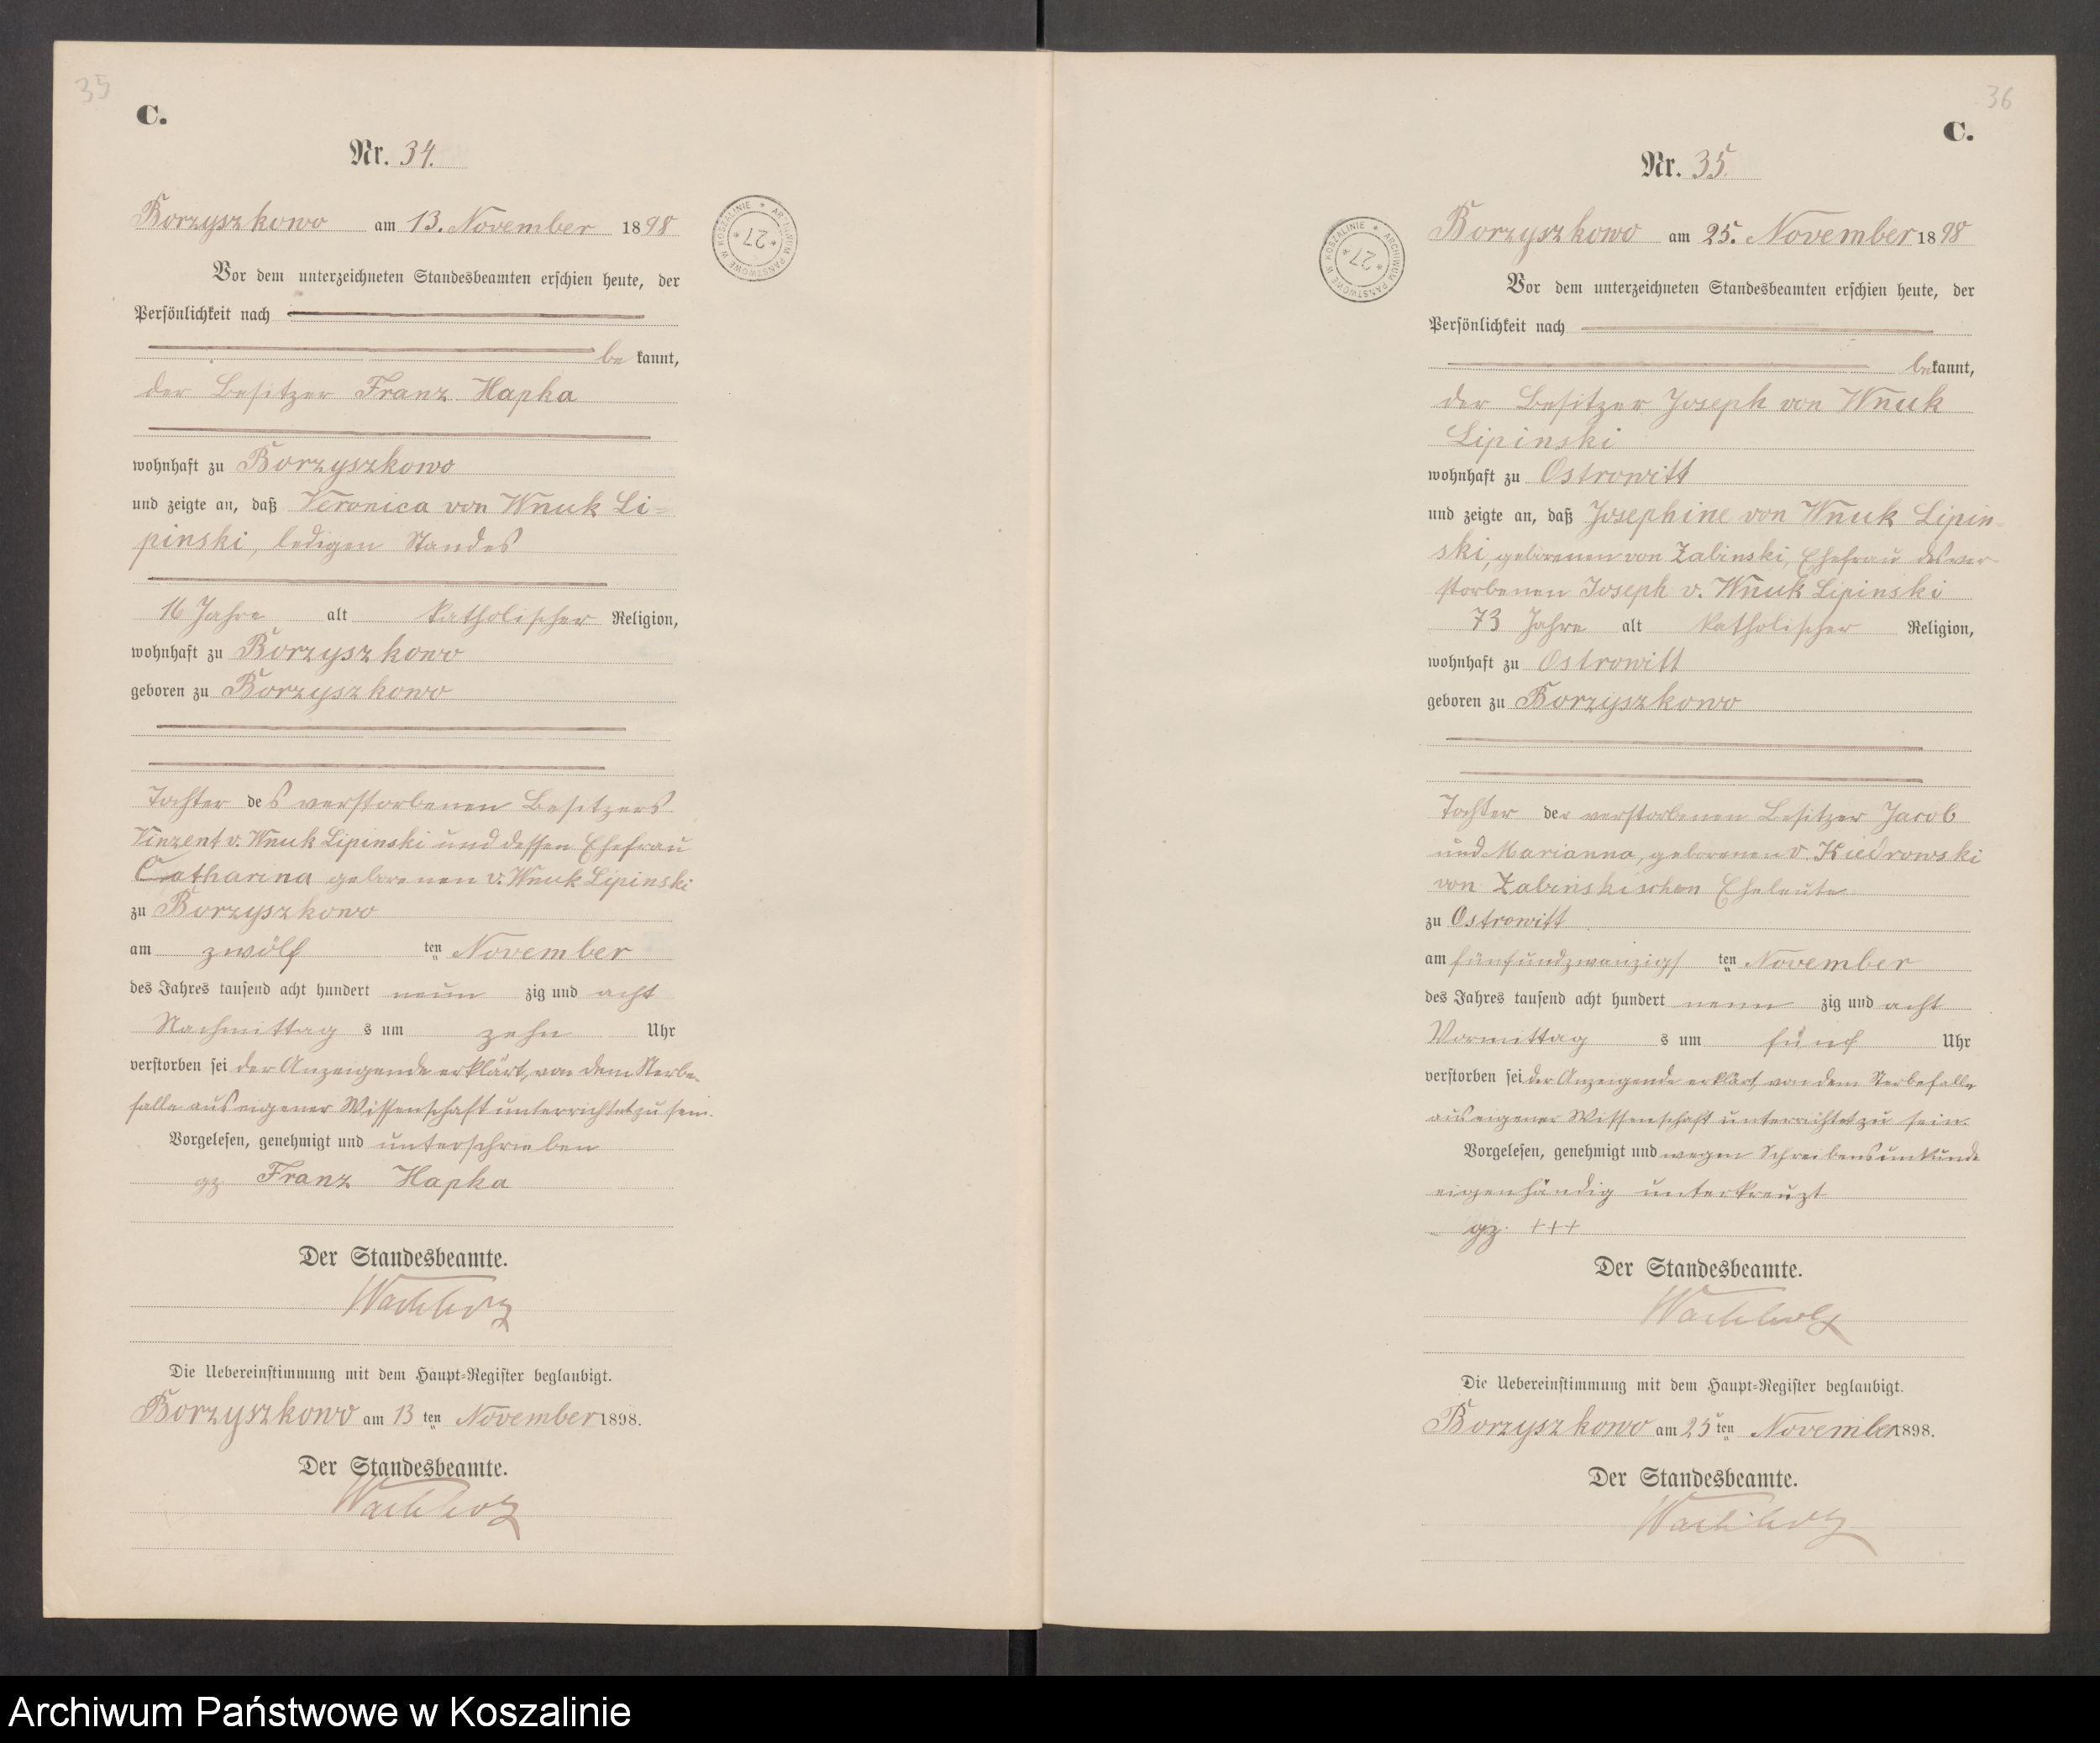 35
C.
Nr. 34.
Borzyszkowo am 13. November 1898
Vor dem unterzeichneten Standesbeamten erschien heute, der
Persönlichkeit nach
bekannt,
der Besitzer Franz Hapka
wohnhaft zu Borzyszkowo
und zeigte an, daß Veronica von Wnuk Li-
pinski, ledigen Standes
16 Jahre alt katholischer Religion,
wohnhaft zu Borzyszkowo
geboren zu Borzyszkowo
Tochter des verstorbenen Besitzers
Vinzent v. Wnuk Lipinski und dessen Ehefrau
Catharina geborenen v. Wnuk Lipinski
zu Borzyszkowo
am zwölf ten November
des Jahres tausend acht hundert neun zig und acht
Nachmittag s um zehn Uhr
verstorben sei der Anzeigende erklärt, von dem Sterbe-
falle aus eigener Wissenschaft unterrichtet zu sein.
Vorgelesen, genehmigt und unterschrieben
gz Franz Hapka
Der Standesbeamte.
Wachholz
Die Uebereinstimmung mit dem Haupt-Register beglaubigt.
Borzyszkowo am 13 ten November 1898.
Der Standesbeamte.
Wachholz
ARCHIWUM PAŃSTWOWE W KOSZALINIE
* 27 *
36
C.
Nr. 35.
Borzyszkowo am 25. November 1898
Vor dem unterzeichneten Standesbeamten erschien heute, der
Persönlichkeit nach
bekannt,
der Besitzer Joseph von Wnuk
Lipinski
wohnhaft zu Ostrowitt
und zeigte an, daß Josephine von Wnuk Lipin-
ski, geborenen von Zabinski, Ehefrau des ver-
storbenen Joseph v. Wnuk Lipinski
73 Jahre alt katholischer Religion,
wohnhaft zu Ostrowitt
geboren zu Borzyszkowo
Tochter der verstorbenen Besitzer Jacob
und Marianna, geborenen v. Kiedrowski
von Zabinskischen Eheleute
zu Ostrowitt
am fünfundzwanzigs ten November
des Jahres tausend acht hundert neun zig und acht
Vormittag s um fünf Uhr
verstorben sei der Anzeigende erklärt von dem Sterbefalle
aus eigener Wissenschaft unterrichtet zu sein.
Vorgelesen, genehmigt und wegen Schreibensunkunde
eigenhändig unterkreuzt
gz. +++
Der Standesbeamte.
Wachholz
Die Uebereinstimmung mit dem Haupt-Register beglaubigt.
Borzyszkowo am 25 ten November 1898.
Der Standesbeamte.
Wachholz
ARCHIWUM PAŃSTWOWE W KOSZALINIE
* 27 *
Archiwum Państwowe w Koszalinie